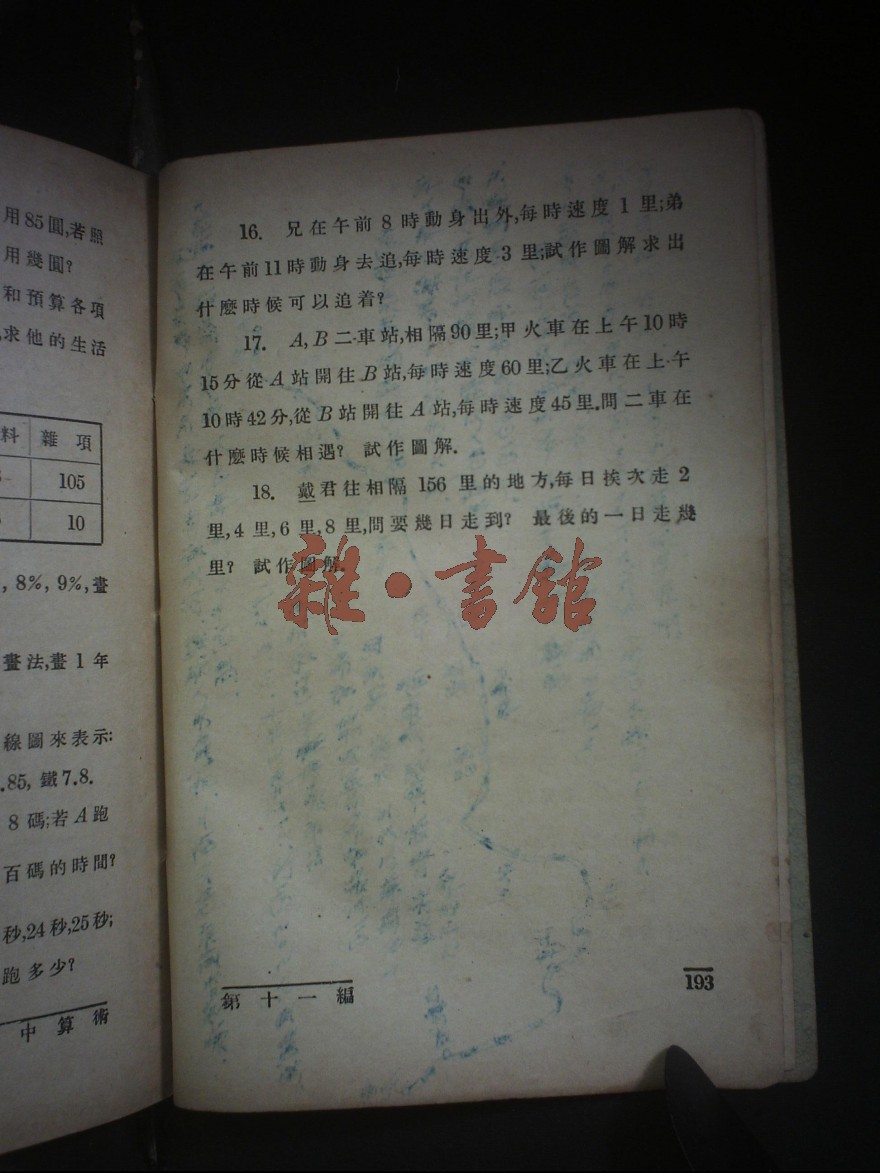 用85圓,若照
用幾圓?
和預算各項
求他的生活
料 雜項
105
10
, 8%, 9%,畫
畫法,畫1年
線圖來表示:
.85, 鐵7.8.
8碼;若A跑
百碼的時間?
秒,24秒,25秒;
跑多少?
中算術
16. 兄在午前8時動身出外,每時速度1里;弟
在午前11時動身去追,每時速度3里;試作圖解求出
什麼時候可以追着?
17. A,B二車站,相隔90里;甲火車在上午10時
15分從A站開往B站,每時速度60里;乙火車在上午
10時42分,從B站開往A站,每時速度45里.問二車在
什麼時候相遇? 試作圖解.
18. 戴君往相隔156里的地方,每日挨次走2
里,4里,6里,8里,問要幾日走到? 最後的一日走幾
里? 試作圖解.
雜·書館
第十一編
193